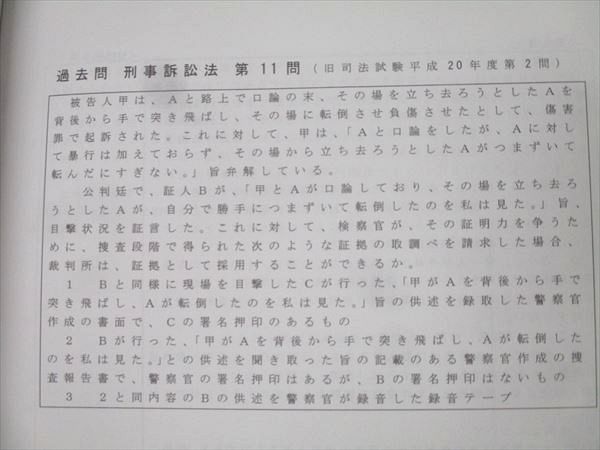 過去問 刑事訴訟法 第11問(旧司法試験平成20年度第2問)
被告人甲は、Aと路上で口論の末、その場を立ち去ろうとしたAを
背後から手で突き飛ばし、その場に転倒させ負傷させたとして、傷害
罪で起訴された。これに対して、甲は、「Aと口論をしたが、Aに対し
て暴行は加えておらず、その場から立ち去ろうとしたAがつまずいて
転んだにすぎない。」旨弁解している。
公判廷で、証人Bが、「甲とAが口論しており、その場を立ち去ろ
うとしたAが、自分で勝手につまずいて転倒したのを私は見た。」旨、
目撃状況を証言した。これに対して、検察官が、その証明力を争うた
めに、捜査段階で得られた次のような証拠の取調べを請求した場合、
裁判所は、証拠として採用することができるか。
1 Bと同様に現場を目撃したCが行った、「甲がAを背後から手で
突き飛ばし、Aが転倒したのを私は見た。」旨の供述を録取した警察官
作成の書面で、Cの署名押印のあるもの
2 Bが行った、「甲がAを背後から手で突き飛ばし、Aが転倒した
のを私は見た。」との供述を聞き取った旨の記載のある警察官作成の捜
査報告書で、警察官の署名押印はあるが、Bの署名押印はないもの
3 2と同内容のBの供述を警察官が録音した録音テープ